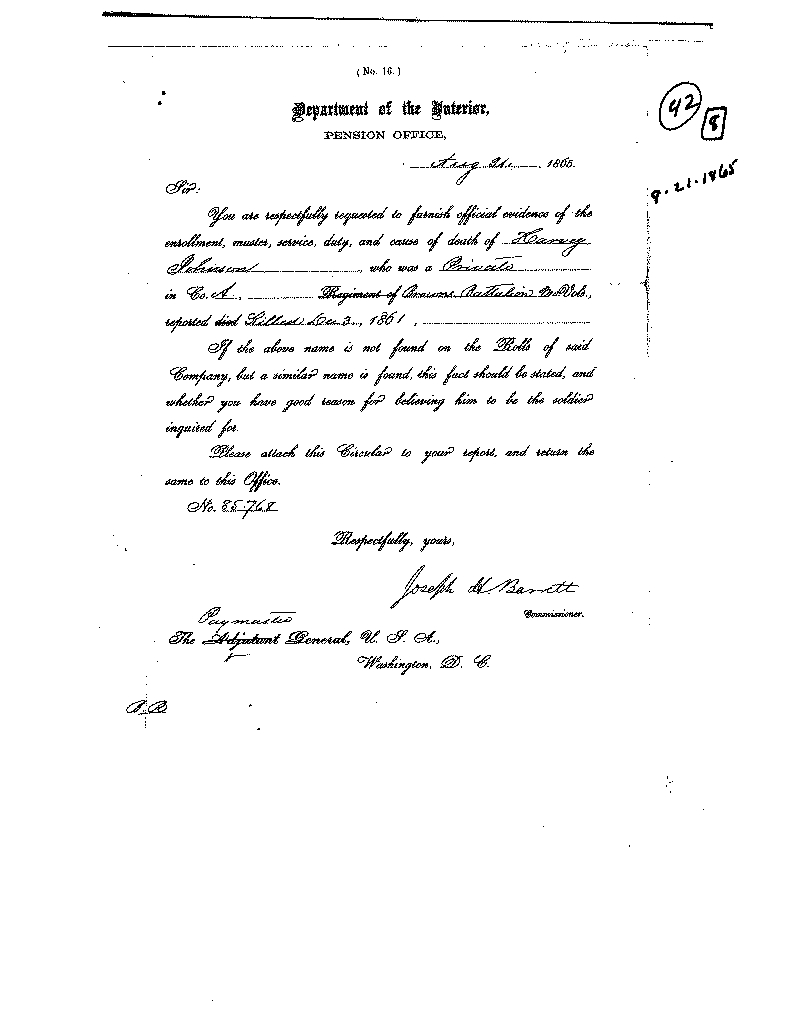 (No. 16.)
Department of the Interior,
PENSION OFFICE,
Aug 21, 1865.
42
8
8-21-1865
Sir:
You are respectfully requested to furnish official evidence of the
enrollment, muster, service, duty, and cause of death of Harvey
Johnson, who was a Private
in Co. A, Regiment of Browns Battalion Mo Vols,
reported died Killed Dec 3, 1861,
If the above name is not found on the Rolls of said
Company, but a similar name is found, this fact should be stated, and
whether you have good reason for believing him to be the soldier
inquired for.
Please attach this Circular to your report, and return the
same to this Office.
No. 85768
Respectfully, yours,
Joseph H Barrett
Commissioner.
Paymaster
The Adjutant General, U. S. A.,
Washington, D. C.